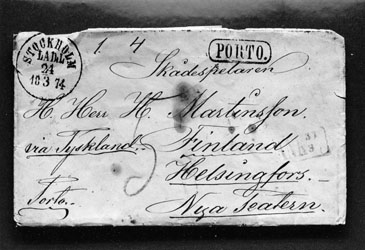 1. 4
STOCKHOLM
LAD.1
24
18 3 74
PORTO.
Skådespelaren
H. Herr H. Martinsson.
via Tyskland. Finland
Helsingfors.
Porto. Nya Teatern.
31